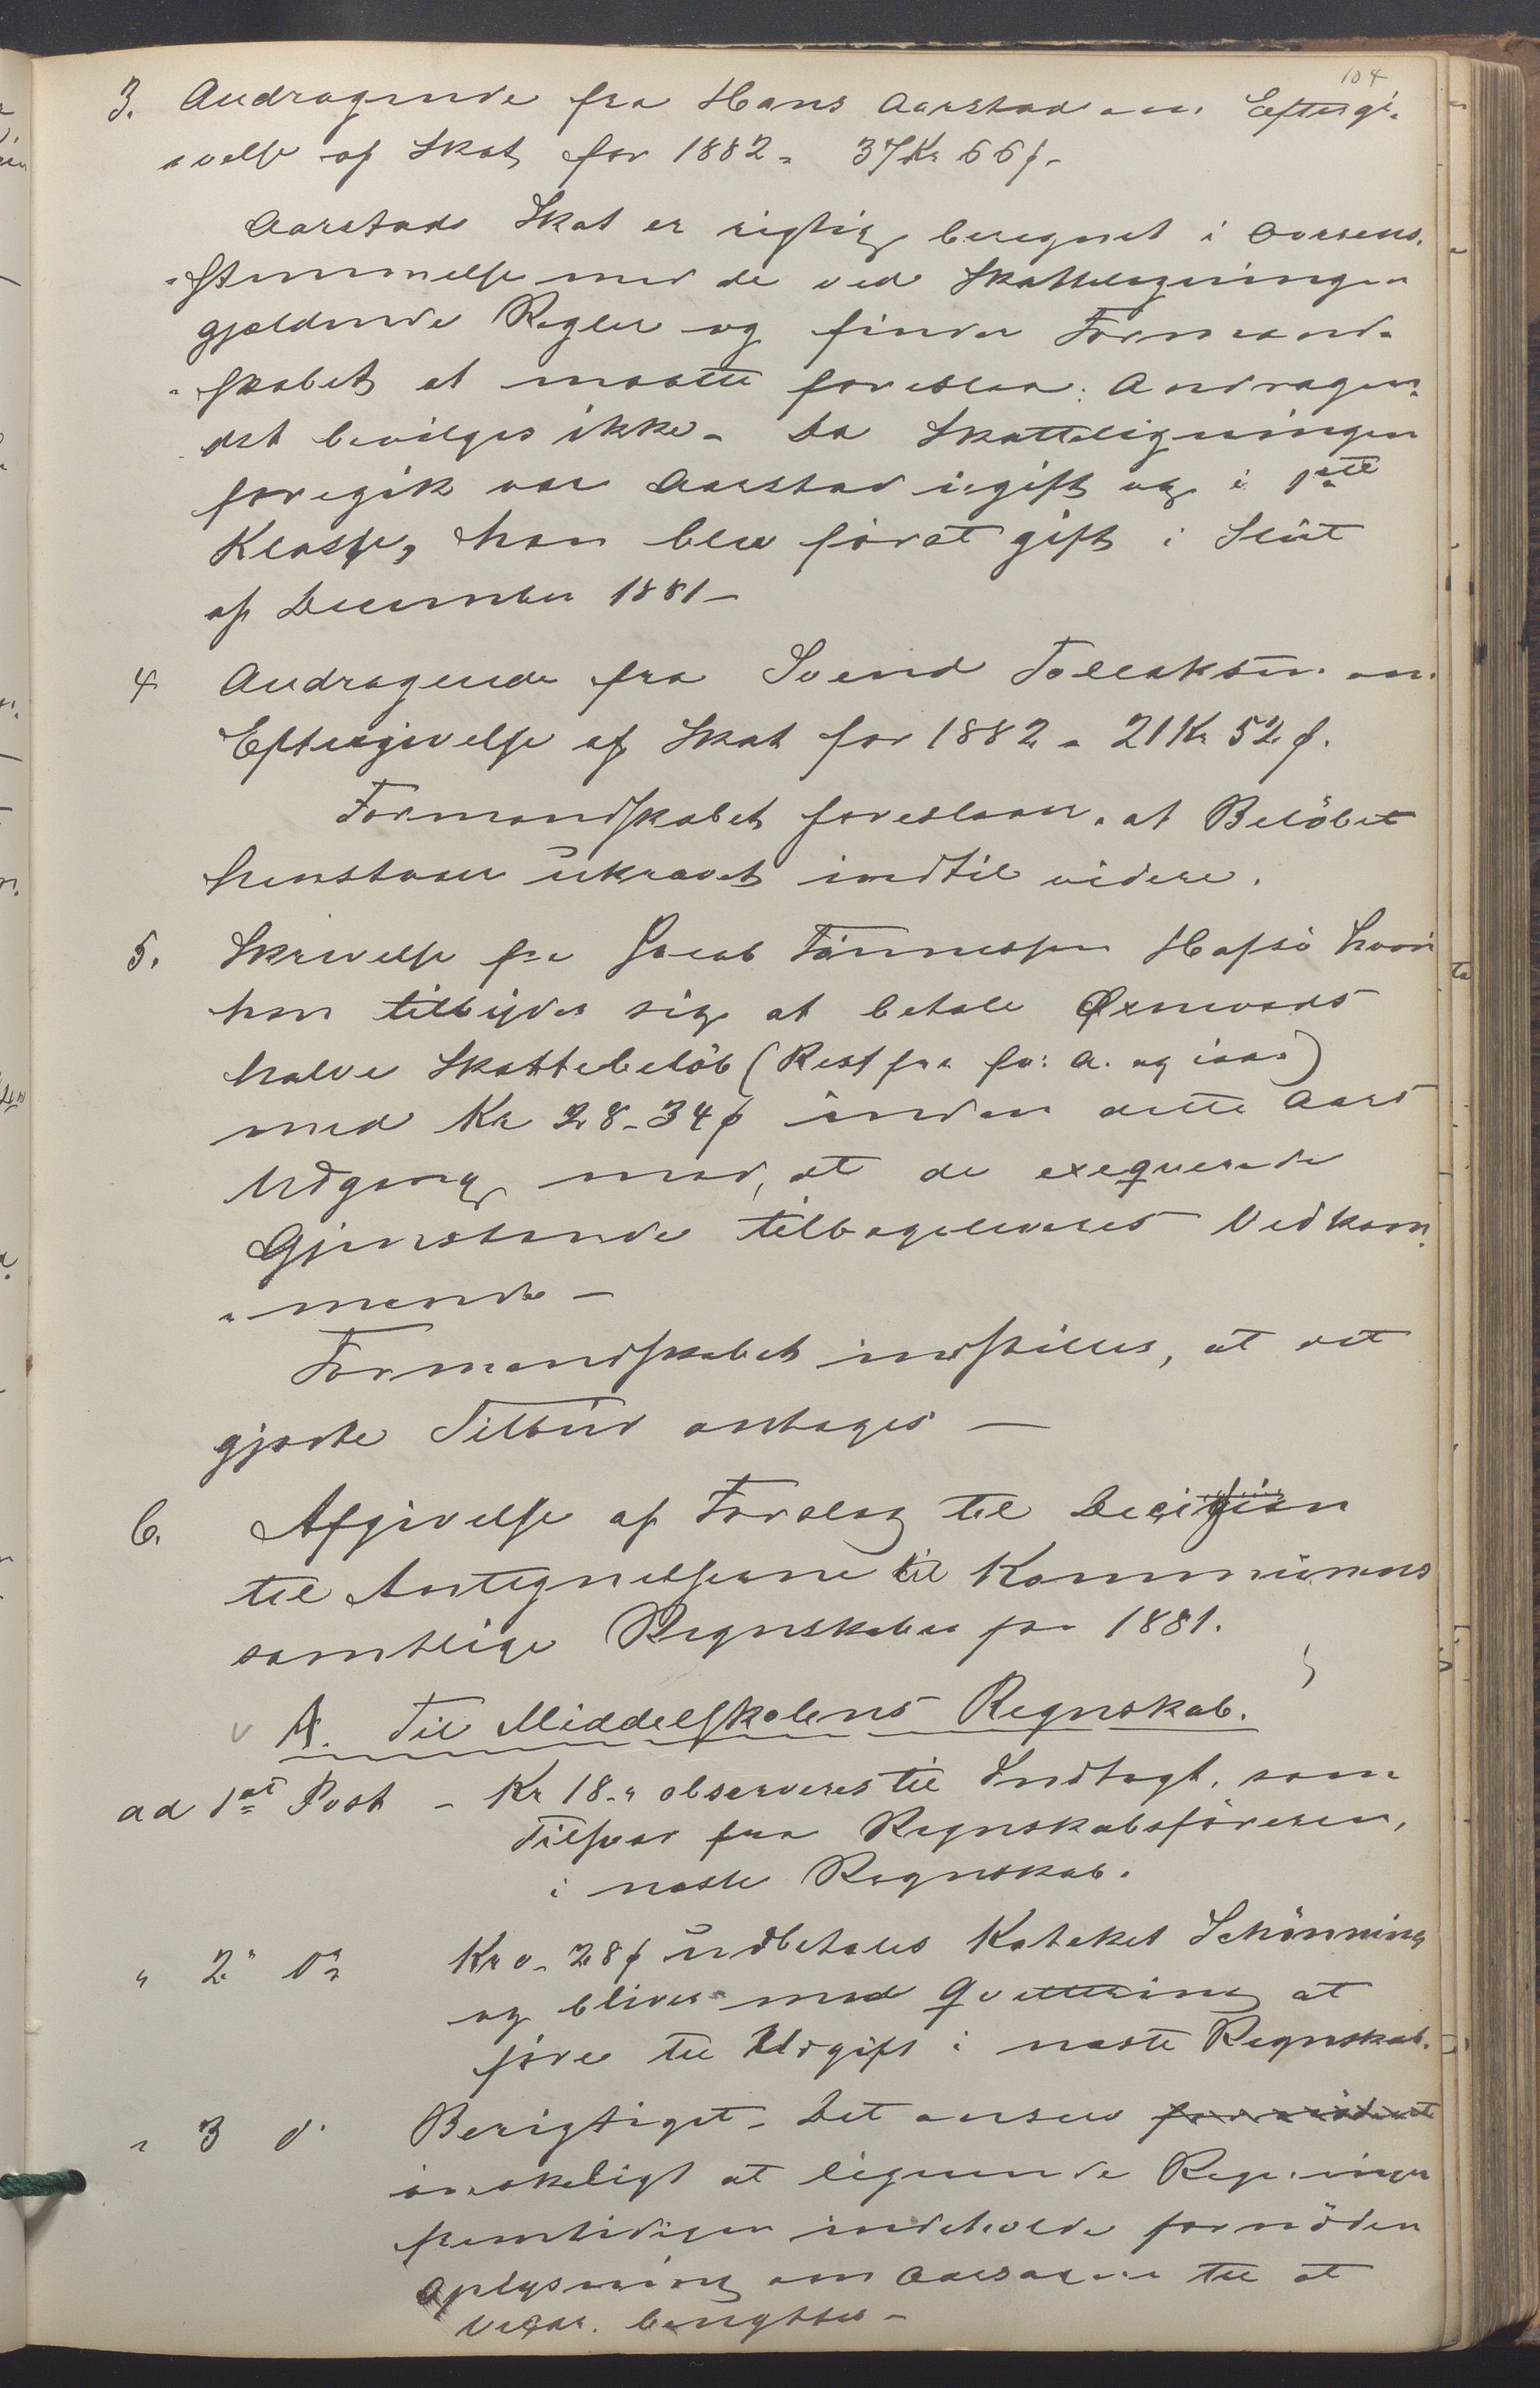 104
3. Andragende fra Hans Aarstad om Eftergi-
velse af Skat for 1882 - 37 Kr 66 ø -
Aarstads Skat er rigtig beregnet i Overens-
stemmelse med de ved Skatteligningen
gjældende Regler og finder Formand-
skabet at maatte foreslaa: Andragen-
det bevilges ikke - Da Skatteligningen
foregik var Aarstad ugift og i 1ste
Klasse, han blev først gift i Slut
af December 1881 -
4 Andragende fra Svend Tollaksen om
Eftergivelse af Skat for 1882 - 21 Kr 52 ø.
Formandskabet foreslaar, at Beløbet
henstaar ukrævet indtil videre.
5. Skrivelse fra Jacob Tønnessen Hafsö hvori
han tilbyder sig at betale
halve Skattebeløb (Rest fra fv: A. og iaar)
med Kr 28-34 ø inden dette Aars
Udgang mod, at de exeqverede
Gjenstande tilbageleveres Vedkom-
mende -
Formandskabet indstiller, at det
gjorte Tilbud antages -
6. Afgivelse af Forslag til Decision
til Antegnelserne til Kommunens
samtlige Regnskaber for 1881.
A. Til Middelskolens Regnskab.
ad 1st Post - Kr 18 - " observeres til Indtægt, som
Tilsvar fra Regnskabsføreren,
i næste Regnskab.
" 2" do Kr 0-28 ø udbetales Kateket Schönning
og bliver med Qvittering at
føre til Udgift i næste Regnskab.
" 3 do Berigtiget - Det ansees fornödent
ønskeligt at lignende Regninger
fremtidigen indeholde fornöden
Oplysning om Aarsagen til at
Vedk. benyttes -